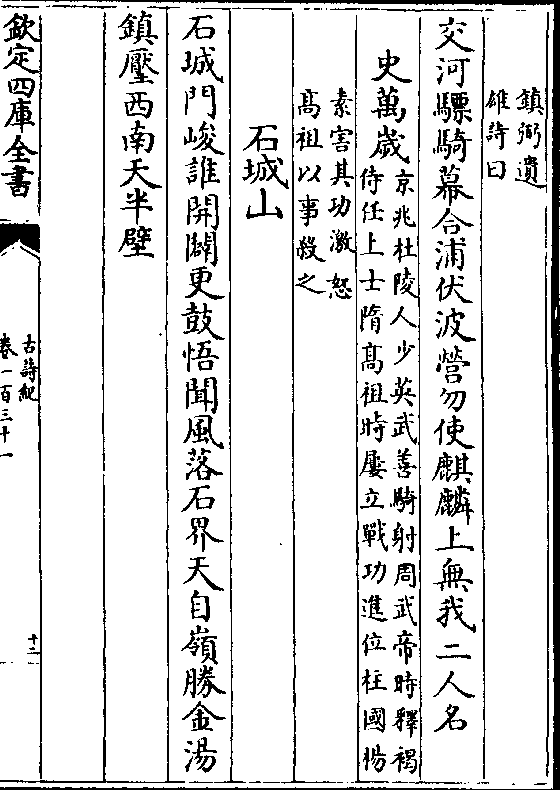 鎮弼遺
雄詩曰
交河驃騎幕合浦伏波營勿使麒麟上無我二人名
史萬歲
京兆杜陵人少英武善騎射周武帝時釋褐
侍任上士隋髙祖時屢立戰功進位柱國楊
素害其功激怒
髙祖以事殺之
石城山
石城門峻誰開闢更鼓悟聞風落石界天自嶺勝金湯
鎮壓西南天半壁
欽定四庫全書
古詩紀
卷一百三十一
十二